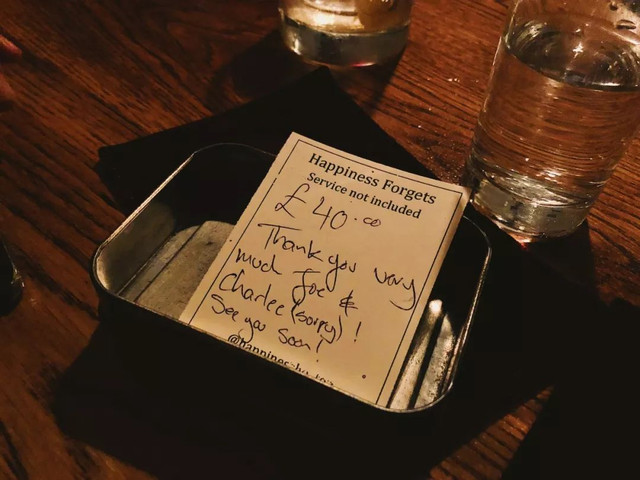 Happiness Forgets
Service not included
£40.00
Thank you very
much Joe &
Charlee (sorry)!
See you soon!